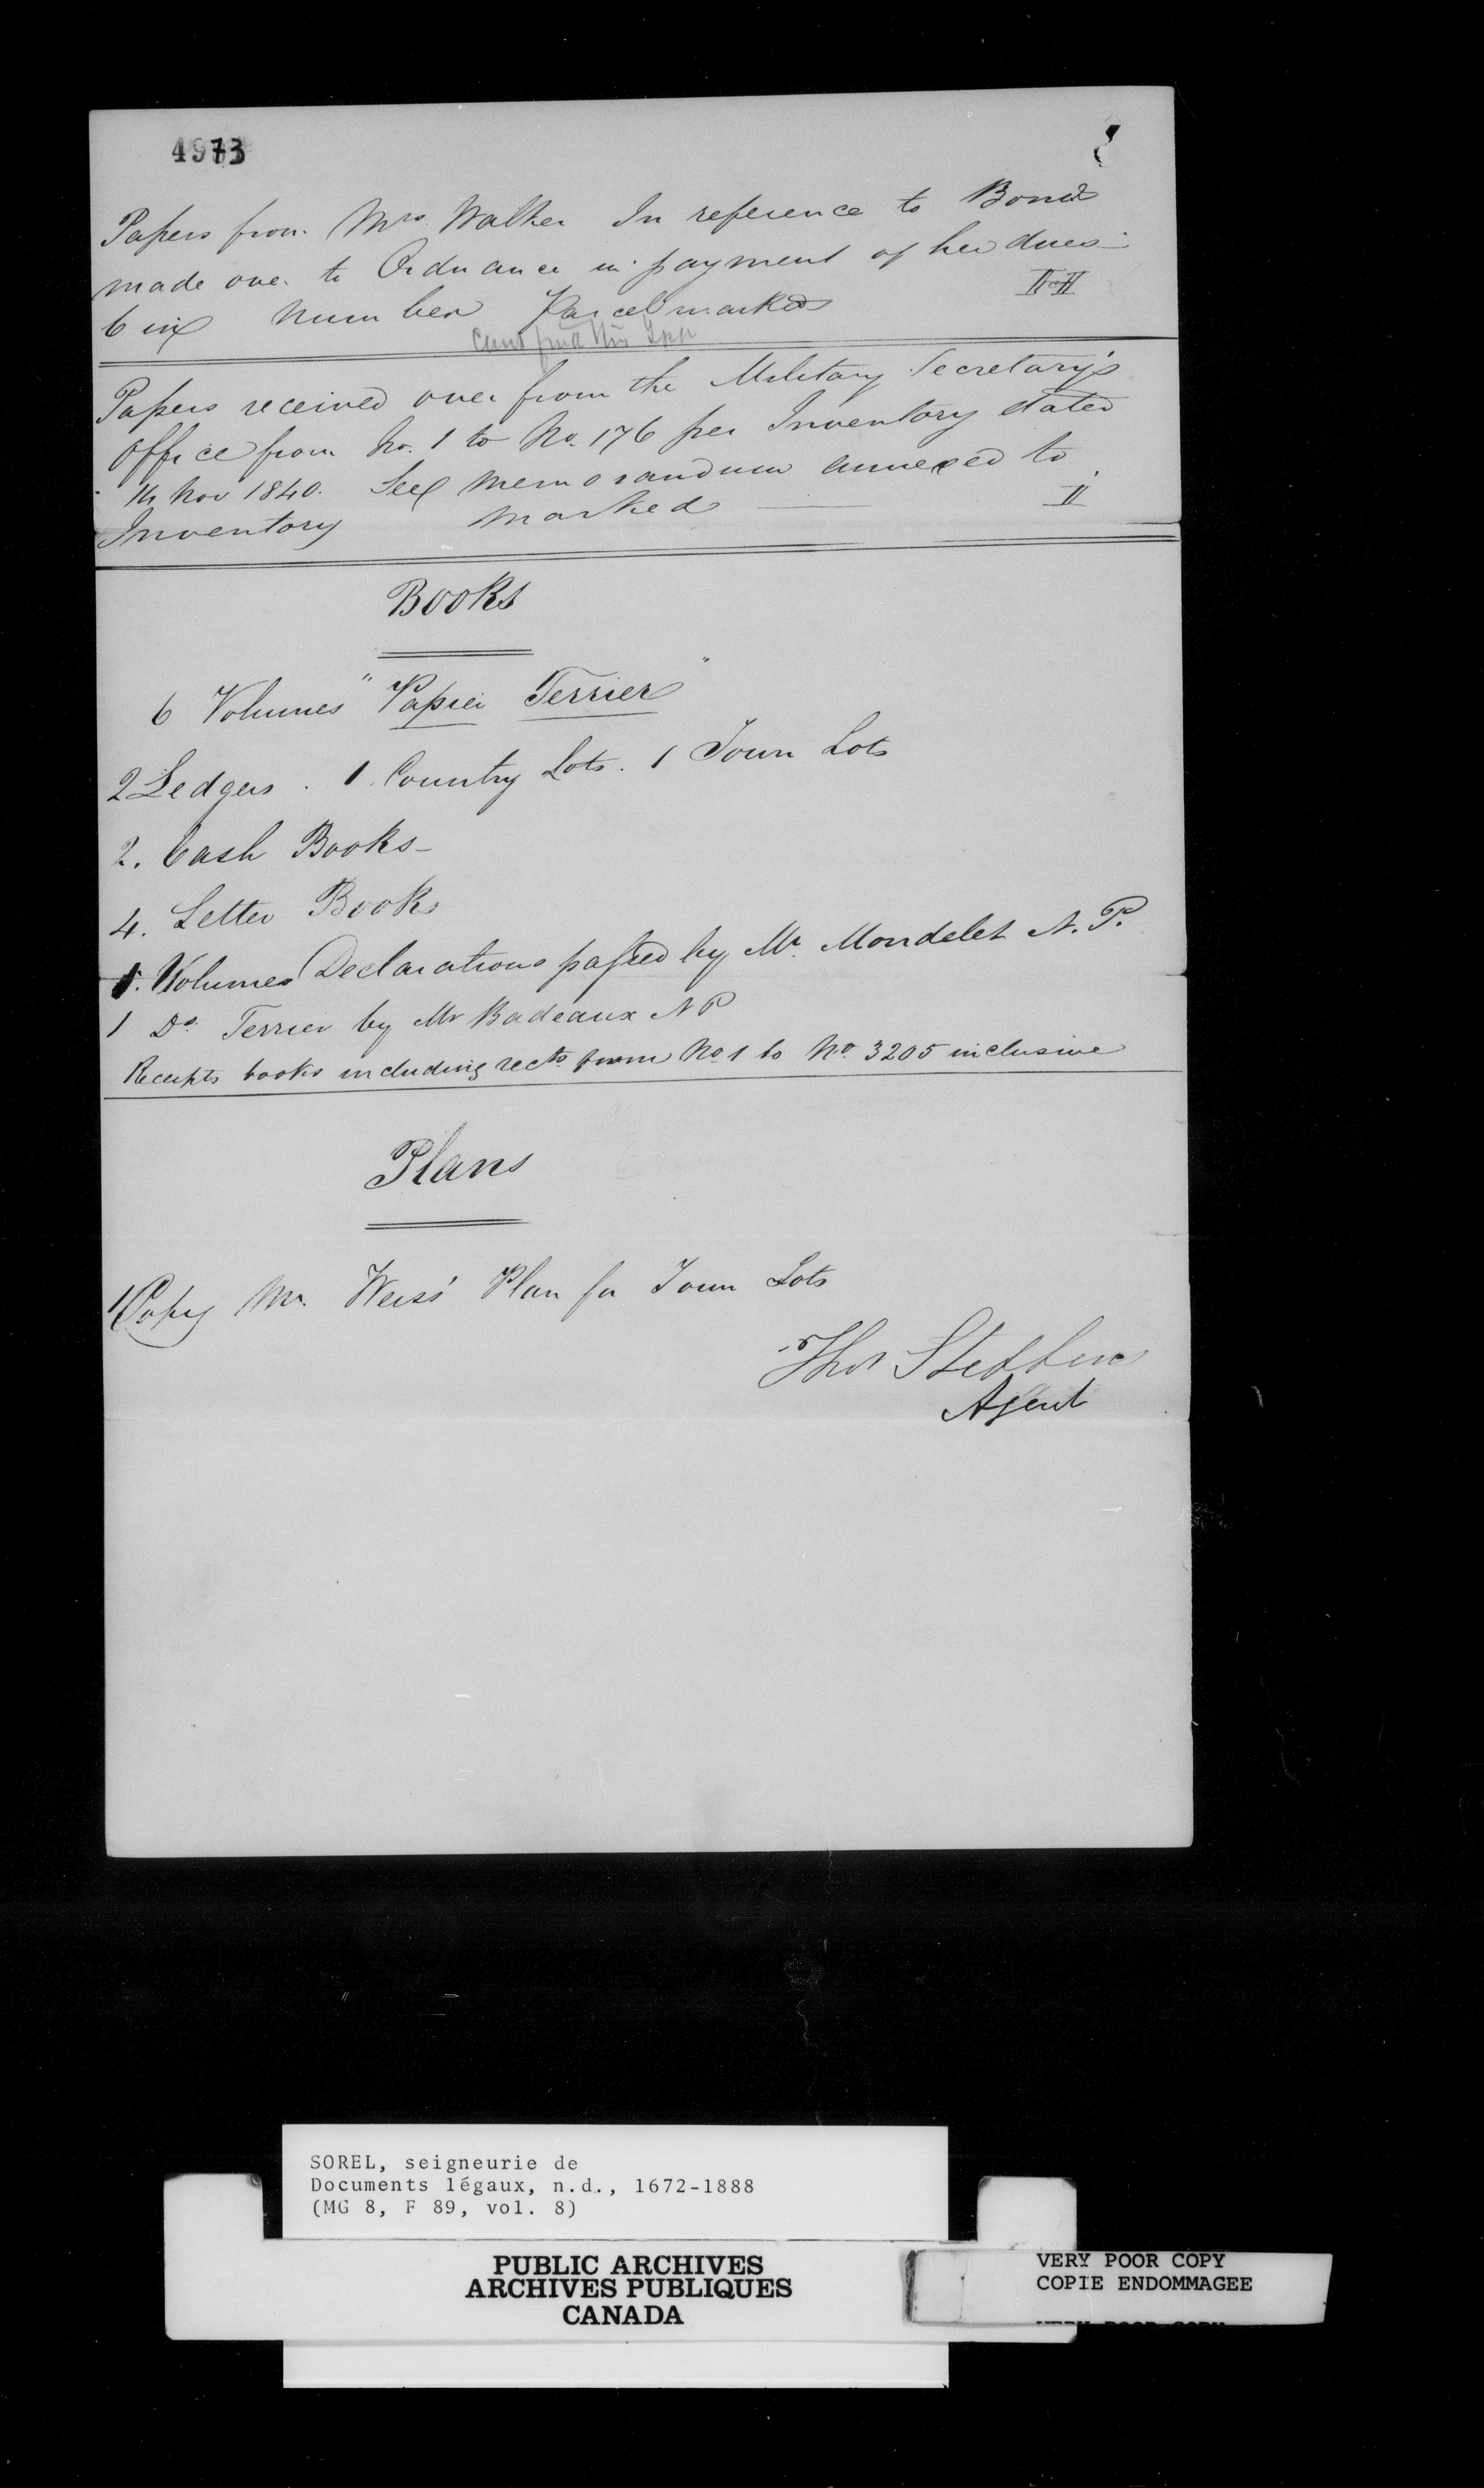 4973
Papers from Mrs Walker In reference to Bond
made over to Ordnance in payment of her dues
6 in number Parcel marked II H
Cant find this
Papers received over from the Military Secretary's
office from No. 1 to No. 176 per Inventory dated
Nov 1840. See memorandum annexed to
Inventory marked — II
Books
6 Volumes "Papier Terrier"
2 Ledgers . 1 Country Lots . 1 Town Lots
2. Cash Books-
4. Letter Books
Volumes Declarations passed by Mr. Mondelet N. P.
1 Do. Terrier by Mr Badeaux N P
Receipts books including rects from No 1 to No 3205 inclusive
Plans
1 Copy Mr. Weiss' Plan for Town Lots
Thos Stephens
Agent
SOREL, seigneurie de
Documents légaux, n.d., 1672-1888
(MG 8, F 89, vol. 8)
PUBLIC ARCHIVES
ARCHIVES PUBLIQUES
CANADA
VERY POOR COPY
COPIE ENDOMMAGEE
VERY POOR COPY